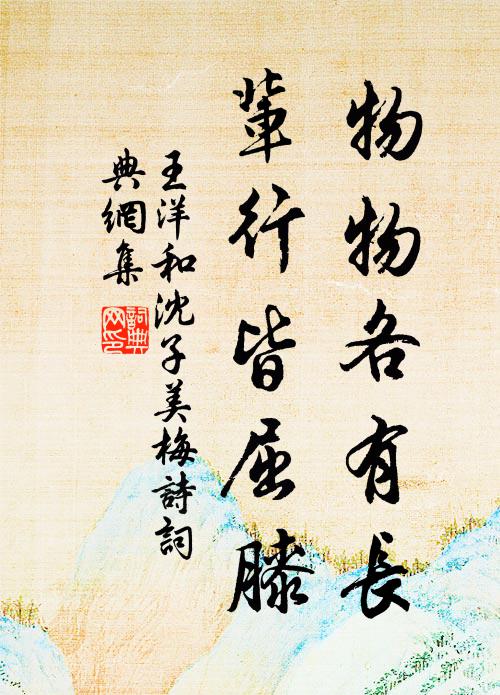 物物各有長
輩行皆屈膝
王洋和沈子美梅詩詞
典網集
詞典網印